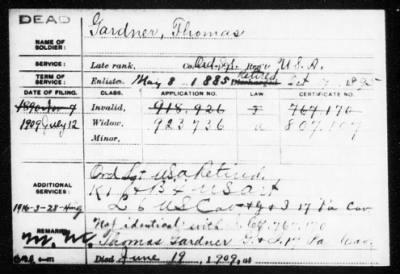 DEAD
NAME OF SOLDIER: Gardner, Thomas
SERVICE: Late rank, Ord. Sgt. Reg't U.S.A.
TERM OF SERVICE: Enlisted May 8, 1885 Retired Discharged Oct 1895
DATE OF FILING. CLASS. APPLICATION NO. LAW CERTIFICATE NO.
1890 Invalid, 918.926 J 767.170
1909 July 12 Widow, 923736 807.107
Minor,
ADDITIONAL SERVICES: Ord Sgt USA Retired
& B & U S Art
L 6 U.S. Cav & G & I 17 Pa Cav
Not identical with 767,170
REMARKS: Thomas Gardner 17 Pa Cav
Died June 19, 1909, at